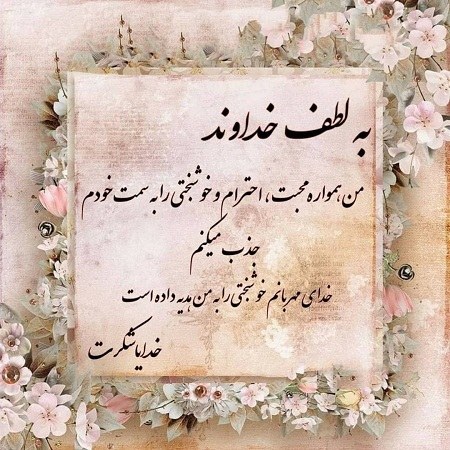 به لطف خداوند
من همواره محبت، احترام و خوشبختی را به سمت خودم
جذب میکنم
خدای مهربانم خوشبختی را به من هدیه داده است
خدایا شکرت